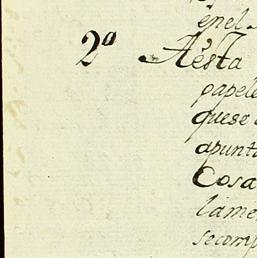 en el
2º Aésta
papele
quese
apunta
Cosa
lame
secomp